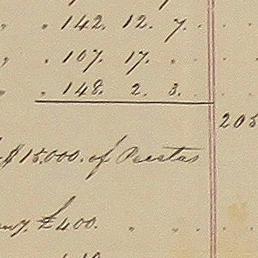 " " 142. 12. 7. " "
" " 107. 17. " "
" " 148. 2. 3. " "
205
$15.000. of Pesetas
£400. " "